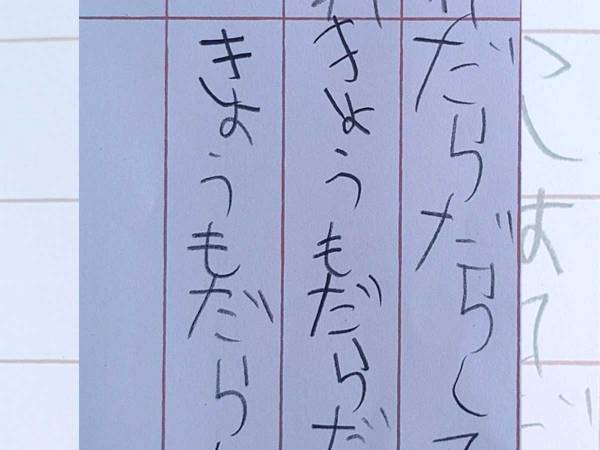 だらだらして
きょうもだらだ
きょうもだら